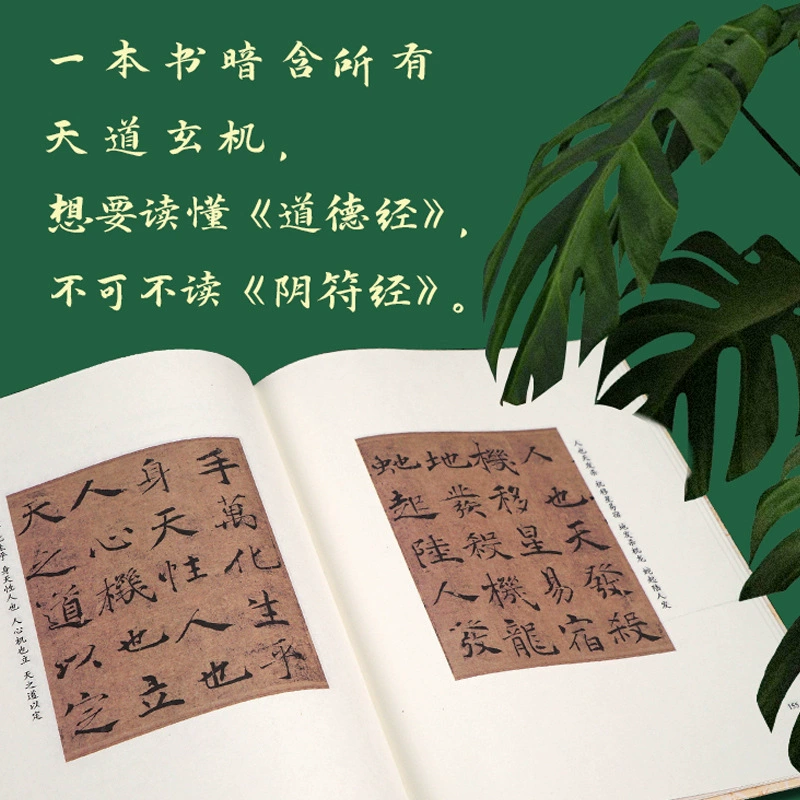 一本书暗含所有
天道玄机，
想要读懂《道德经》，
不可不读《阴符经》。
手萬化生乎
身天性人也
人心機也立
天之道以定
身天性人也 人心机也立 天之道以定
人也天發殺
機移星易宿
地發殺機龍
虵起陸人發
人也天发杀 机移星易宿 地发杀机龙 蛇起陆人发